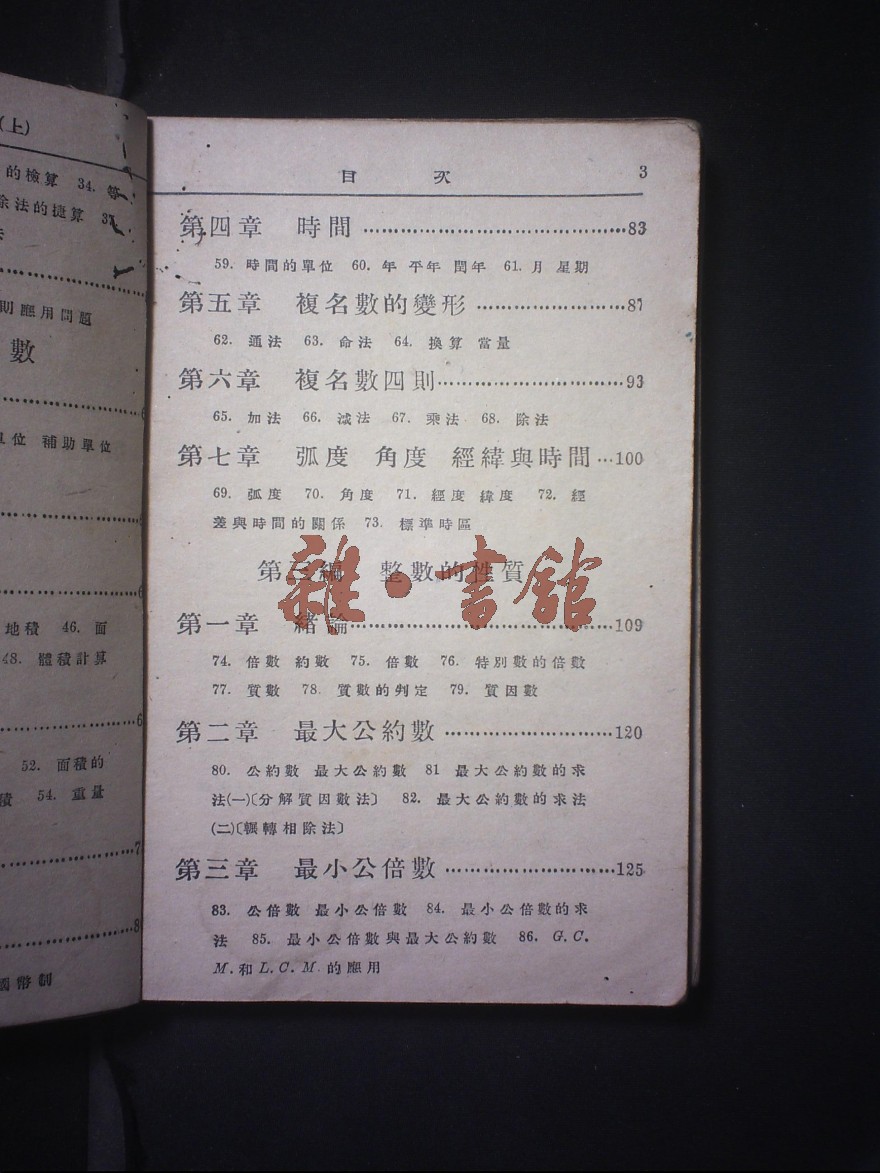 (上)
的檢算 34. 等
除法的捷算
則應用問題
數
單位 補助單位
地積 46. 面
48. 體積計算
52. 面積的
積 54. 重量
國幣制
目 次 3
第四章 時間 ……………………………………83
59. 時間的單位 60. 年 平年 閏年 61. 月 星期
第五章 複名數的變形 ……………………87
62. 通法 63. 命法 64. 換算 當量
第六章 複名數四則…………………………93
65. 加法 66. 減法 67. 乘法 68. 除法
第七章 弧度 角度 經緯與時間 …100
69. 弧度 70. 角度 71. 經度 緯度 72. 經
差與時間的關係 73. 標準時區
第三編 整數的性質
雜·書館
第一章 緒論……………………………………109
74. 倍數 約數 75. 倍數 76. 特別數的倍數
77. 質數 78. 質數的判定 79. 質因數
第二章 最大公約數 ………………………120
80. 公約數 最大公約數 81 最大公約數的求
法(一)〔分解質因數法〕 82. 最大公約數的求法
(二)〔輾轉相除法〕
第三章 最小公倍數 ………………………125
83. 公倍數 最小公倍數 84. 最小公倍數的求
法 85. 最小公倍數與最大公約數 86. G.C.
M. 和 L.C.M. 的應用